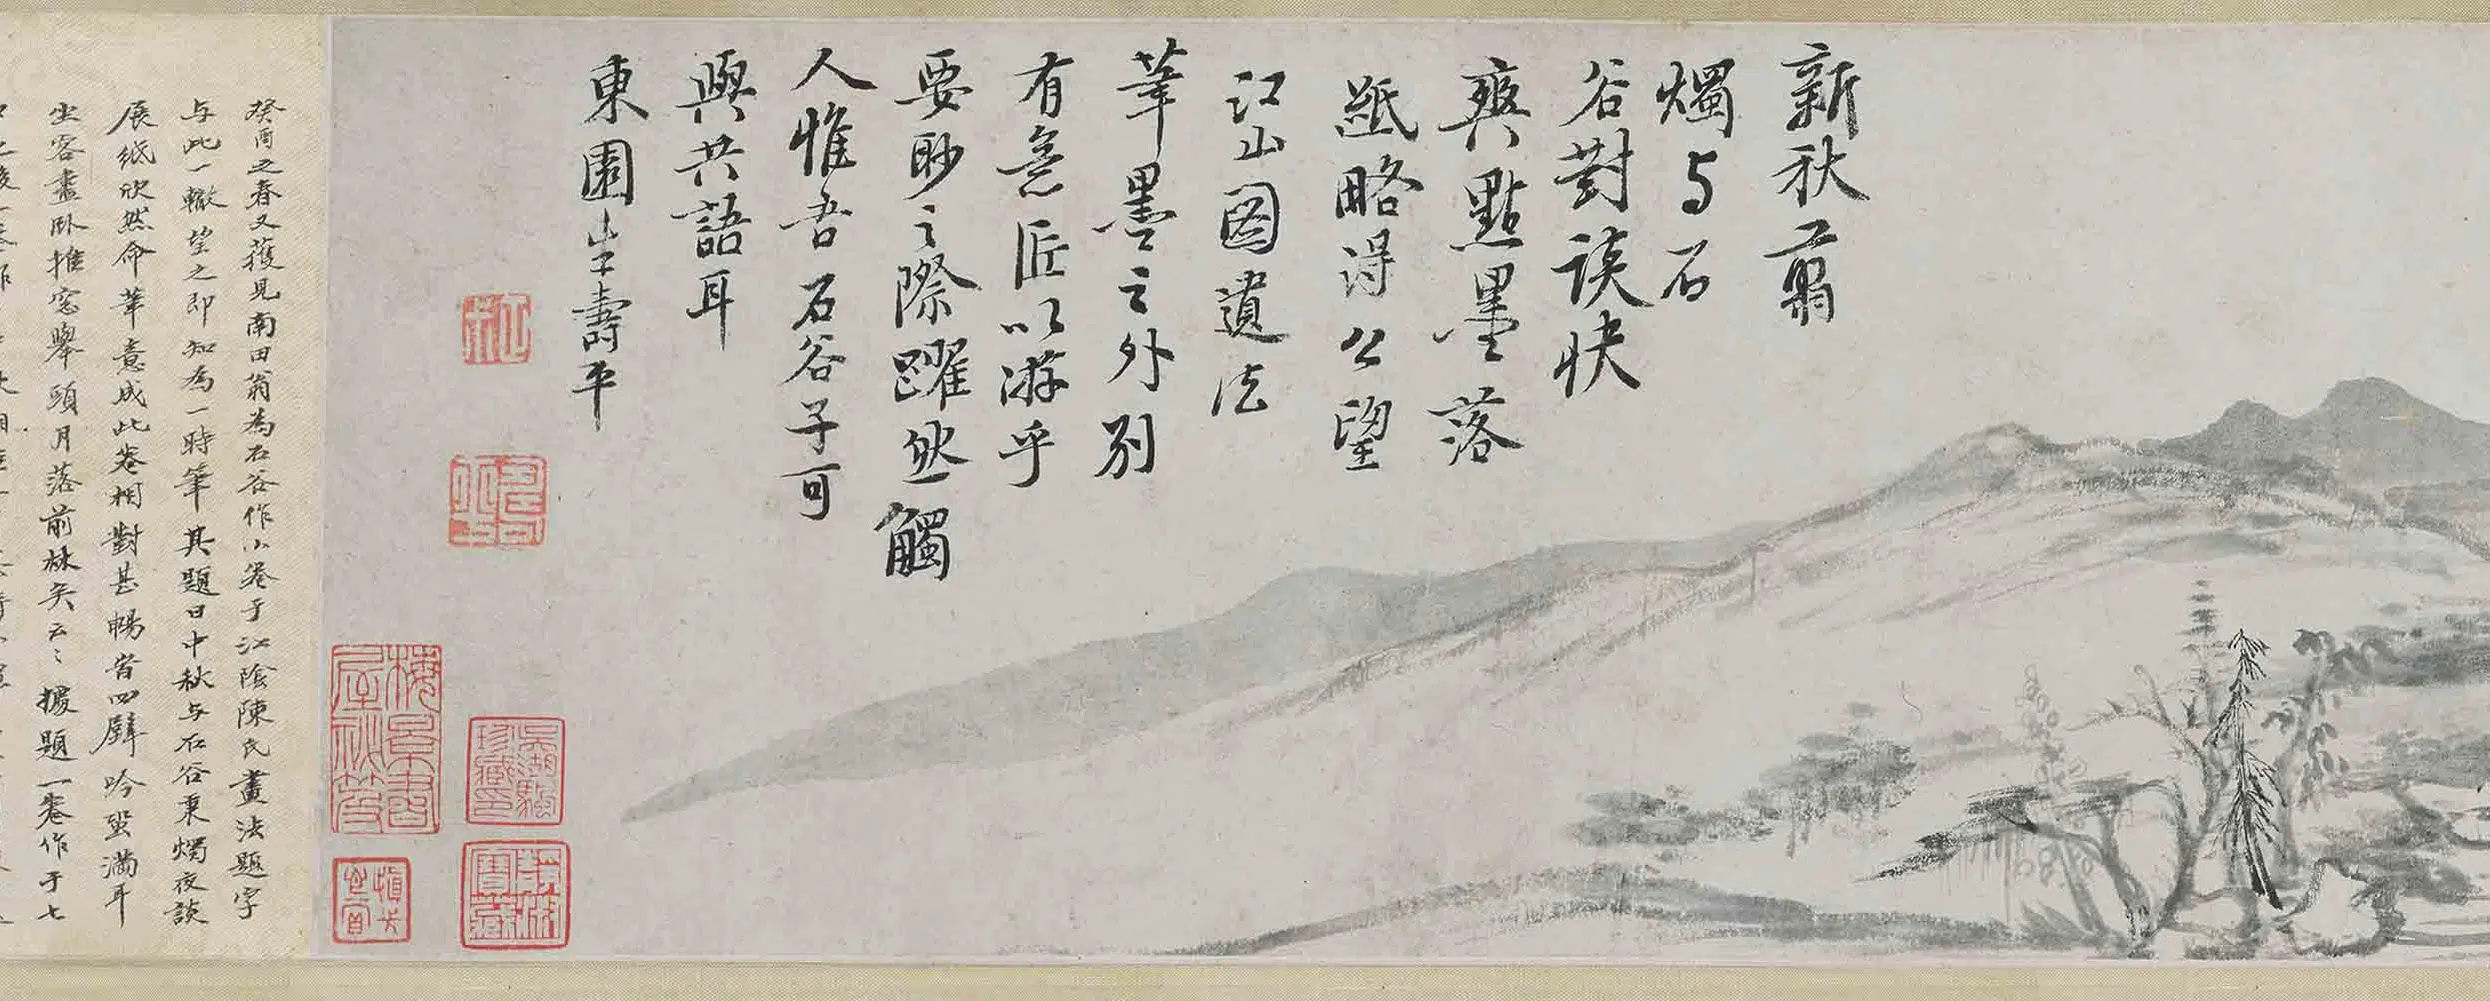 新秋翦
燭与石
谷對談快
與點墨落
紙略得公望
江山圖遺法
筆墨之外別
有意匠以游乎
要眇之際躍然一觸
人惟吾石谷子可
與共語耳
東園生壽平
癸酉之春又獲見南田翁為石谷作小卷于江陰陳氏畫法題字
与此一轍望之即知為一時筆其題曰中秋与石谷秉燭夜談
展紙欣然命筆意成此卷相對甚暢昔四壁吟蛩滿耳
坐客盡臥推窓舉頭月落前林矣云〻據題一卷作于七
梅景書屋秘笈
吳湖颿珍藏印